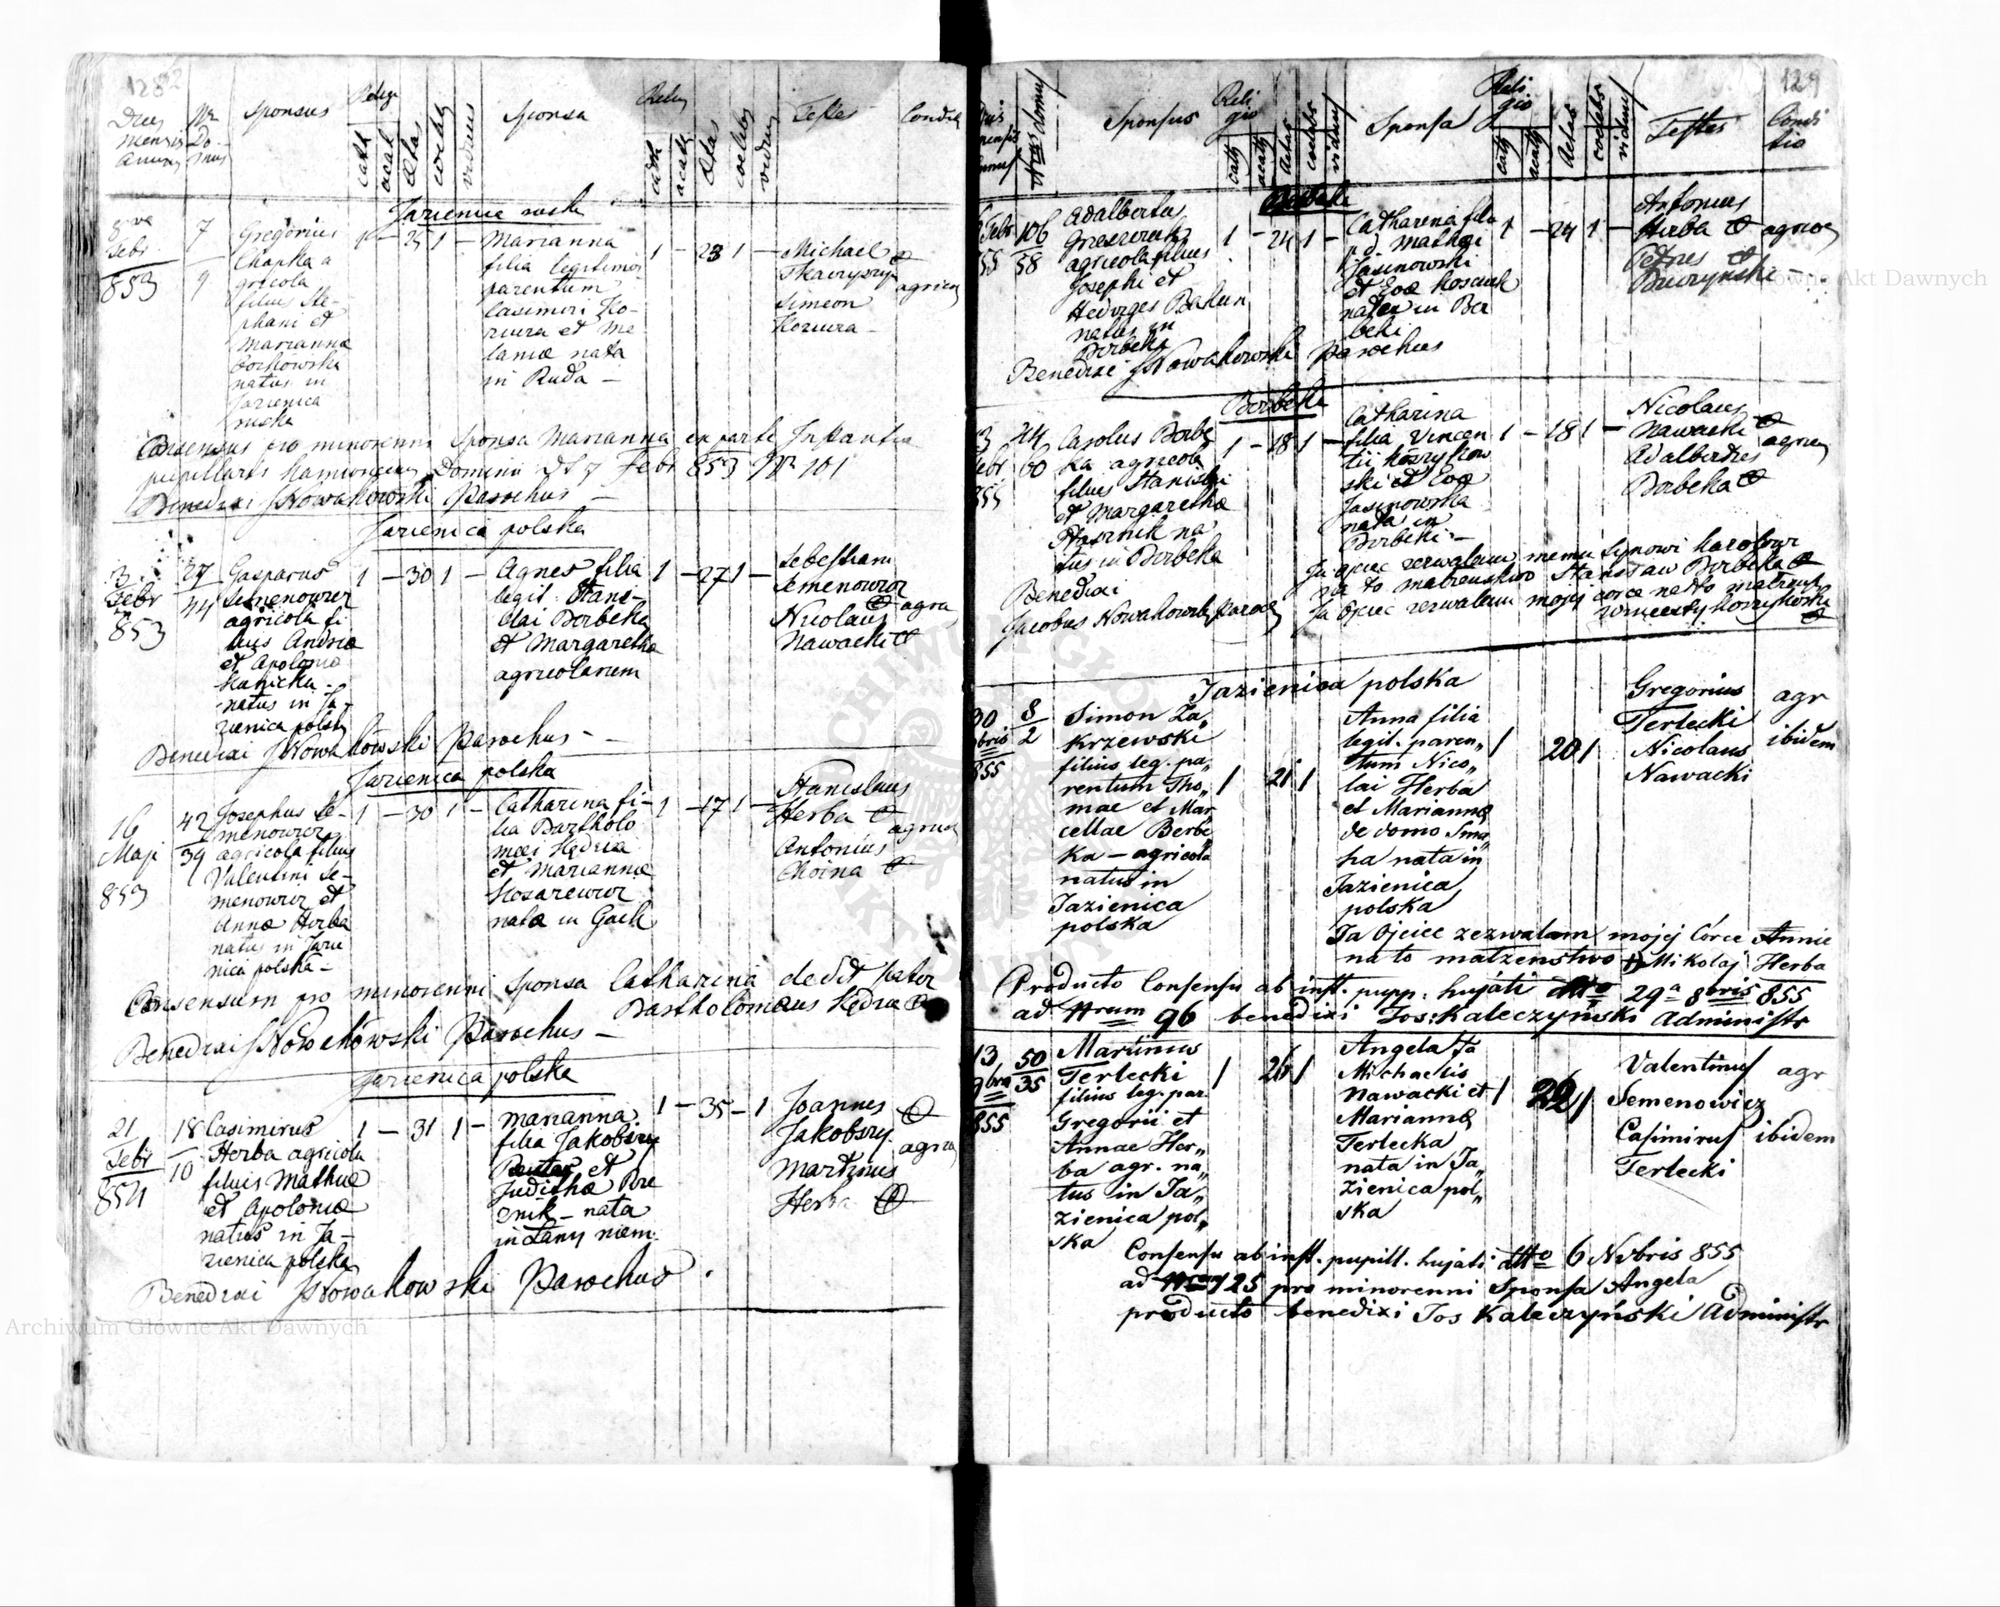 128
Dies
mensis
Annus
Nr
Do-
mus
Sponsus
Relig
cath
acat
Ætas
coeleb
viduus
Sponsa
Relig
cath
acath
Ætas
coeleb
viduus
Testes
Conditio
Jazienica ruska
8va
Febr
853
7
9
Gregorius
Chapka a
gricola
filius Ste-
phani et
Marianna
natus in
Jazienica
ruska
1 - 25 1 -
Marianna
filia legitimor
parentum
Casimiri Ko-
et Me
laniæ nata
in Ruda -
1 - 23 1 -
Michael
Simeon
agricol
Consensus pro minorenni Sponsa Marianna ex parte Instantia
pupillaris Kamionecen Dominii dt 7 Febr 853 Nr 101
Benedixi J Nowakowski Parochus -
Jazienica polska
3
Febr
853
27
44
Gasparus
Semenowicz
agricola fi
lius Andreæ
et Apolonia
natus in Ja-
zienica polsk
1 - 30 1 -
Agnes filia
legit. Stanis-
lai Berbeka
et Margaretha
agricolarum
1 - 27 1 -
Sebestian
Semenowicz
Nicolaus
Nawacki
agric
Benedixi J Nowakowski Parochus -
Jazienica polska
16
Maji
853
42
39
Josephus Se-
menowicz
agricola filius
Valentini Se-
menowicz et
Annæ Herba
natus in Jazie
nica polska -
1 - 30 1 -
Catharina fi-
lia Bartholo
mæi Hędria
et Mariannæ
Kosarewicz
nata in Gack
1 - 17 1 -
Stanislaus
Herba
Antonius
Choina
agricol
Consensum pro minorenni Sponsa Catharina dedit Pater
Bartholomæus Hędria
Benedixi J Nowakowski Parochus -
Jazienica polska
21
Febr
854
18
10
Casimirus
Herba agricola
filius Mathiæ
et Apoloniæ
natus in Ja-
zienica polska
1 - 31 1 -
Marianna
filia Jakobszy
et
Judithæ
nata
in Łany niem.
1 - 35 - 1
Joannes
Jakobszy
Martinus
Herba
agric
Benedixi J Nowakowski Parochus.
129
Nrus domus
Sponsus
Reli
gio
cath
acath
Aetas
coelebs
viduus
Sponsa
Reli
gio
cath
acath
Aetas
coelebs
viduus
Testes
Condi
tio
Berbeki
Febr
55
106
58
Adalbertus
agricola filius
Josephi et
Hedviges Bakun
natus in
Berbeka
1 - 24 1 -
Catharina filia
Jasinowski
et Evæ
nata in Ber
beki
1 - 24 1 -
Antonius
Herba
Petrus
agricol
Benedixi J Nowakowski Parochus
Berbeki
3
Febr
855
24
60
Carolus Berbe
ka agricola
filius Stanislai
et Margaretha
na
tus in Berbeka
1 - 18 1 -
Catharina
filia Vincen
tii Koszykow
ski et Evæ
Jasinowska
nata in
Berbeki -
1 - 18 1 -
Nicolaus
Nawacki
Adalbertus
Berbeka
agricol
Ja ojciec zezwalam memu synowi Karolowi
na to małżeństwo Stanisław Berbeka
Ja Ojciec zezwalam mojej córce na to małżeńst
Wincenty Koszykowski
Benedixi
Jacobus Nowakowski Paroch
Jazienica polska
30
8bris
855
8
2
Simon Za„
krzewski
filius leg. pa„
rentum Tho„
mae et Mar
cellae Berbe
ka - agricola
natus in
Jazienica
polska
1 21 1
Anna filia
legit. paren„
tum Nico„
lai Herba
et Mariannæ
de domo Sma„
ha nata in
Jazienica
polska
1 20 1
Gregorius
Terlecki
Nicolaus
Nawacki
agr
ibidem
Ja Ojciec zezwalam mojej Córce Annie
na to małżeństwo Mikołaj Herba
Producto Consensu ab inst. pupp: hujati dtto 29a 8bris 855
ad Nrum 96 benedixi Jos: Kaleczyński Administr
13
9bris
855
50
35
Martinus
Terlecki
filius leg. par.
Gregorii et
Annae Her„
ba agr. na„
tus in Ja„
zienica pol„
ska
1 26 1
Angela fa
Michaelis
Nawacki et
Mariannæ
Terlecka
nata in Ja„
zienica pol„
ska
1 22 1
Valentinus
Semenowicz
Casimirus
Terlecki
agr
ibidem
Consensu ab inst. pupill. hujati dtto 6 Nvbris 855
ad Nrum 125 pro minorenni Sponsa Angela
producto benedixi Jos Kaleczyński Administr
Archiwum Główne Akt Dawnych